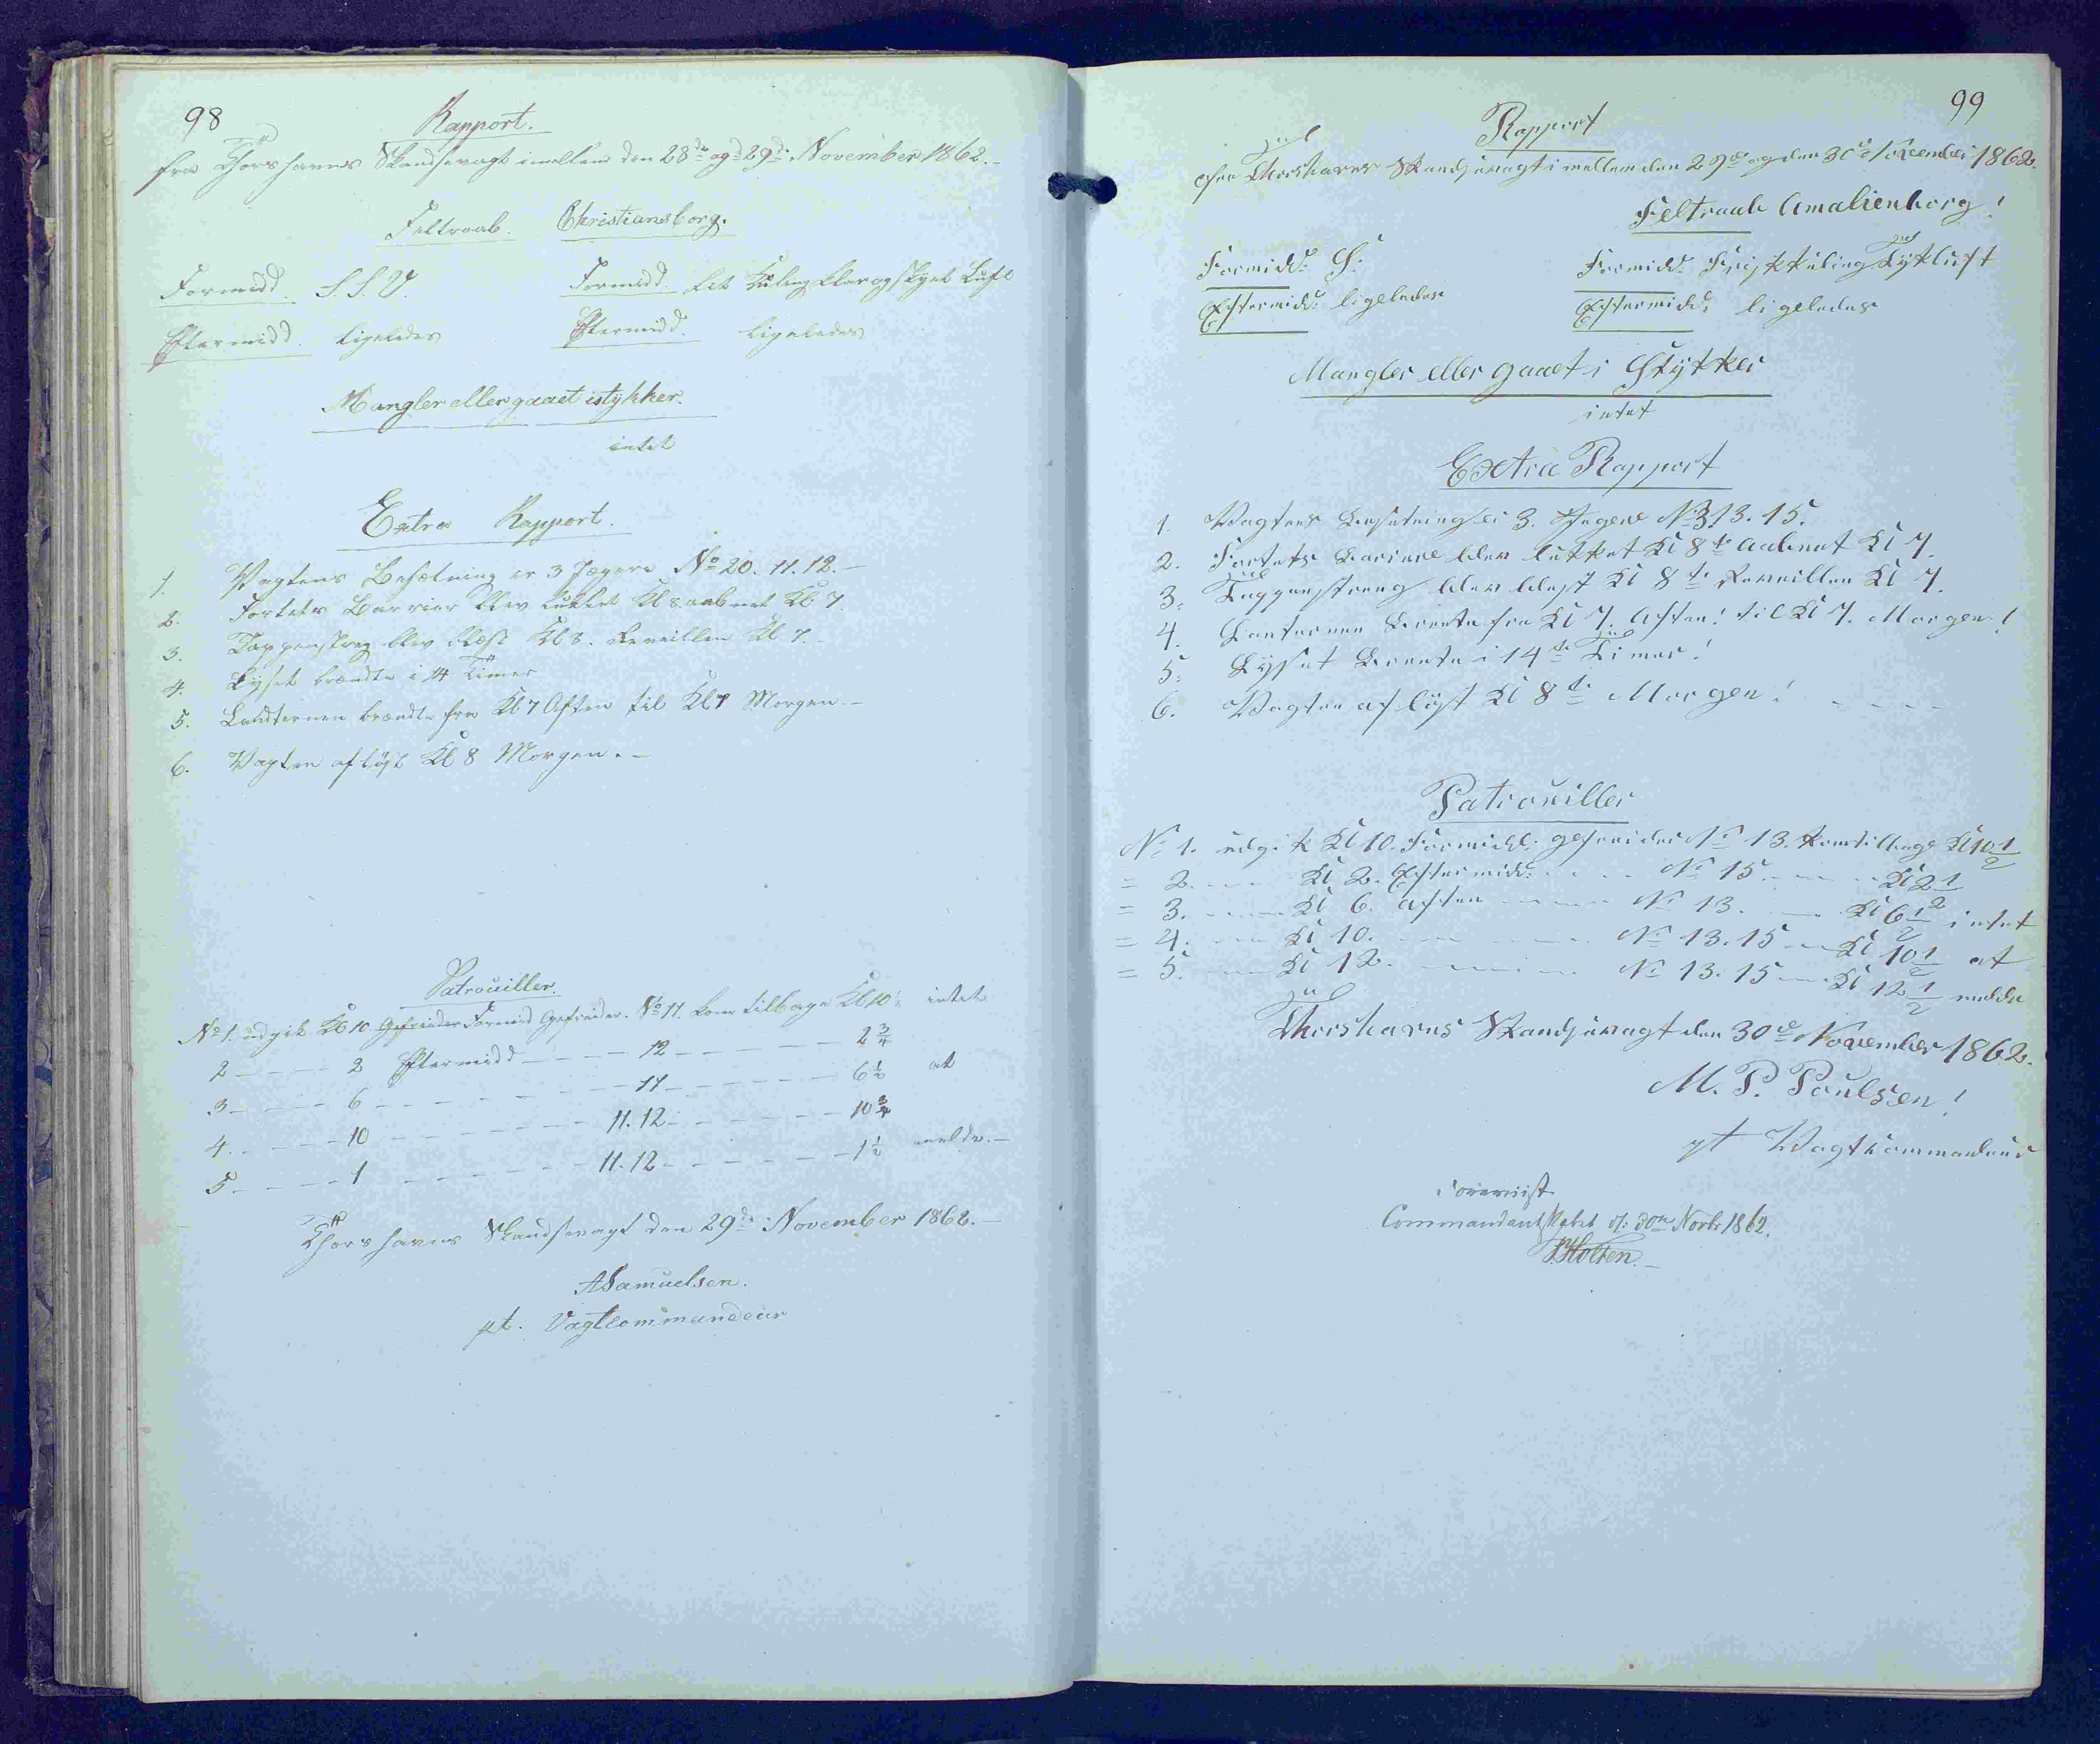 98
Rapport.
fra Thorshavns Skandsevagt imellem den 28de og 29de November 1862.-
Feltraab. Christiansborg.
Formidd. S.S.V. Formidd. Lit Kuling klar og skyet Luft
Eftermidd. ligeledes Eftermidd. ligeledes
Mangler eller gaaet istykker.
intet
Extra Rapport.
1. Vagtens Besætning er 3 Jægere No 20. 11. 12.-
2. Fortets Barrier blev lukket Kl 8 aabnet Kl 7.
3. Tappenstreg blev blæst Kl 8. Reveillen Kl 7.-
4. Lyset brændte i 14 Timer
5. Landternen brændte fra Kl 7 Aften til Kl 7 Morgen.-
6. Vagten afløst Kl 8 Morgen.-
Patrouiller.
No 1. udgik Kl 10 Gefreider Formid Gefreider. No 11. kom tilbage Kl 10½ intet
2 - - - - 2 Eftermidd - - - - 12 - - - - - - 2¾
3 - - - - 6 - - - - - - - 11 - - - - - - 6½ at
4. - - - - 10 - - - - - - - 11.12 - - - - - - 10¾
5 - - - - 1 - - - - - - - 11.12 - - - - - - 1½ melde.-
Thorshavns Skandsevagt den 29de November 1862.-
A Samuelsen.
pt. Vagtcommandeur
99
Rapport
fra Thorshavns Skandsevagt imellem den 29de og den 30de November 1862.
Feltraab Amalienborg!
Formidd: S: Formidd: Frisk Kuling Tyk luft
Eftermidd: ligeledes Eftermidd: ligeledes
Mangler eller gaaet i Stykker
intet
Extra Rapport
1. Vagtens Besetning er 3. Jegere No 3 13. 15.
2. Fortets Bariere blev lukket Kl 8te Aabnet Kl 7.
3. Tappenstreng blev blest Kl 8te Reveillen Kl 7.
4. Lanternen Brente fra Kl 7. Aften! til Kl 7. Morgen!
5. Lyset Brente i 14te Timer!
6. Vagten afløst Kl 8te Morgen! - - - -
Patrouiller
No 1. udgik Kl 10. Formidd: gefreider No 13. kom tilbage Kl 10½
= 2. - - - Kl 2. Eftermidd: - - - - No 15. - - - Kl 2½
= 3. - - - Kl 6. Aften - - - - No 13. - - - Kl 6½ intet
= 4. - - - Kl 10. - - - - No 13. 15 - - Kl 10½ at
= 5. - - - Kl 12. - - - - No 13. 15 - - Kl 12½ melde
Thorshavns Skandsevagt den 30de November 1862.
M. P. Poulsen!
pt Vagtkommandeur
Foreviist
Commandantskabet d. 30te Novbr 1862.
Holten.-